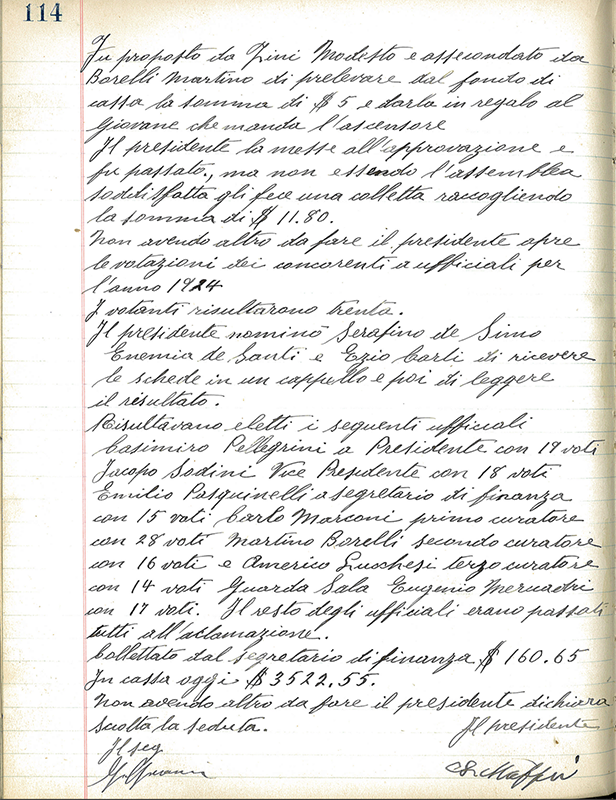 114
Fu proposto da Zini Modesto e assecondato da
Borelli Martino di prelevare dal fondo di
cassa la somma di $ 5 e darla in regalo al
giovane che manda l'ascensore
Il presidente la messe all'approvazione e
fu passato, ma non essendo l'assemblea
soddisfatta gli fece una colletta raccogliendo
la somma di $ 11.80.
Non avendo altro da fare il presidente apre
le votazioni dei concorenti a ufficiali per
l'anno 1924
I votanti risultarono trenta.
Il presidente nominò Serafino de Simo
Enemia de Santi e Ezio Carli di ricevere
le schede in un cappello e poi di leggere
il risultato.
Risultavano eletti i seguenti ufficiali
Casimiro Pellegrini a Presidente con 19 voti
Jacopo Sodini Vice Presidente con 18 voti
Emilio Pasquinelli a segretario di finanza
con 15 voti Carlo Marconi primo curatore
con 28 voti Martino Borelli secondo curatore
con 16 voti e Americo Lucchesi terzo curatore
con 14 voti Guarda Sala Eugenio Mercadri
con 17 voti. Il resto degli ufficiali erano passati
tutti all'aclamazione.
Collettato dal segretario di finanza $ 160.65
In cassa oggi $ 3522.55.
Non avendo altro da fare il presidente dichiara
sciolta la seduta.
Il presidente
Il seg